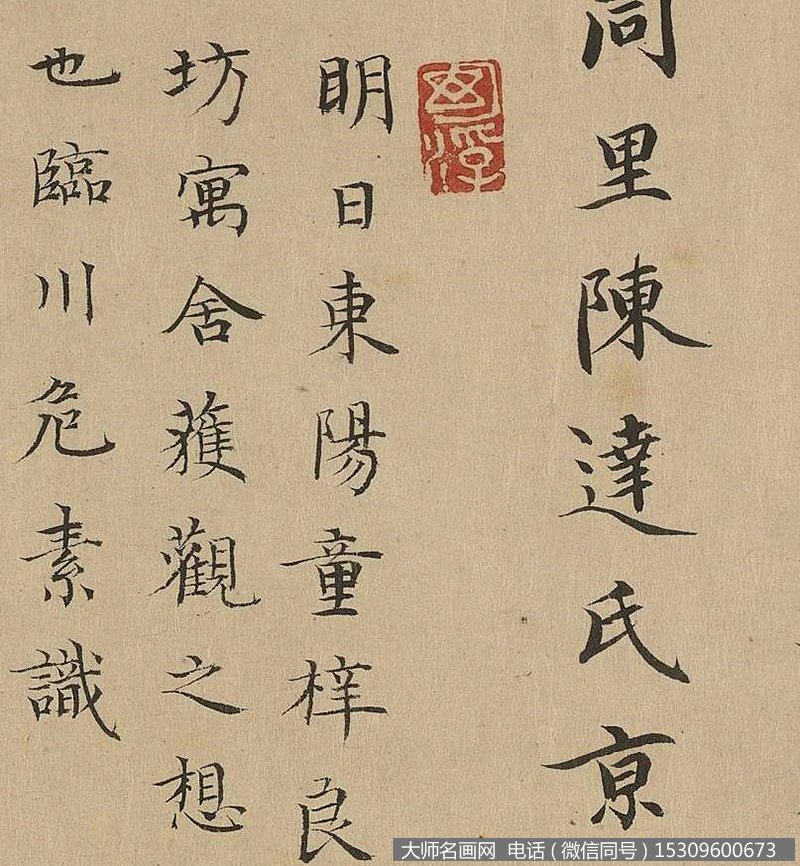 同里陳達氏京
明日東陽童梓良
坊寓舍獲觀之想
也臨川危素識
大师名画网 电话（微信同号）15309600673